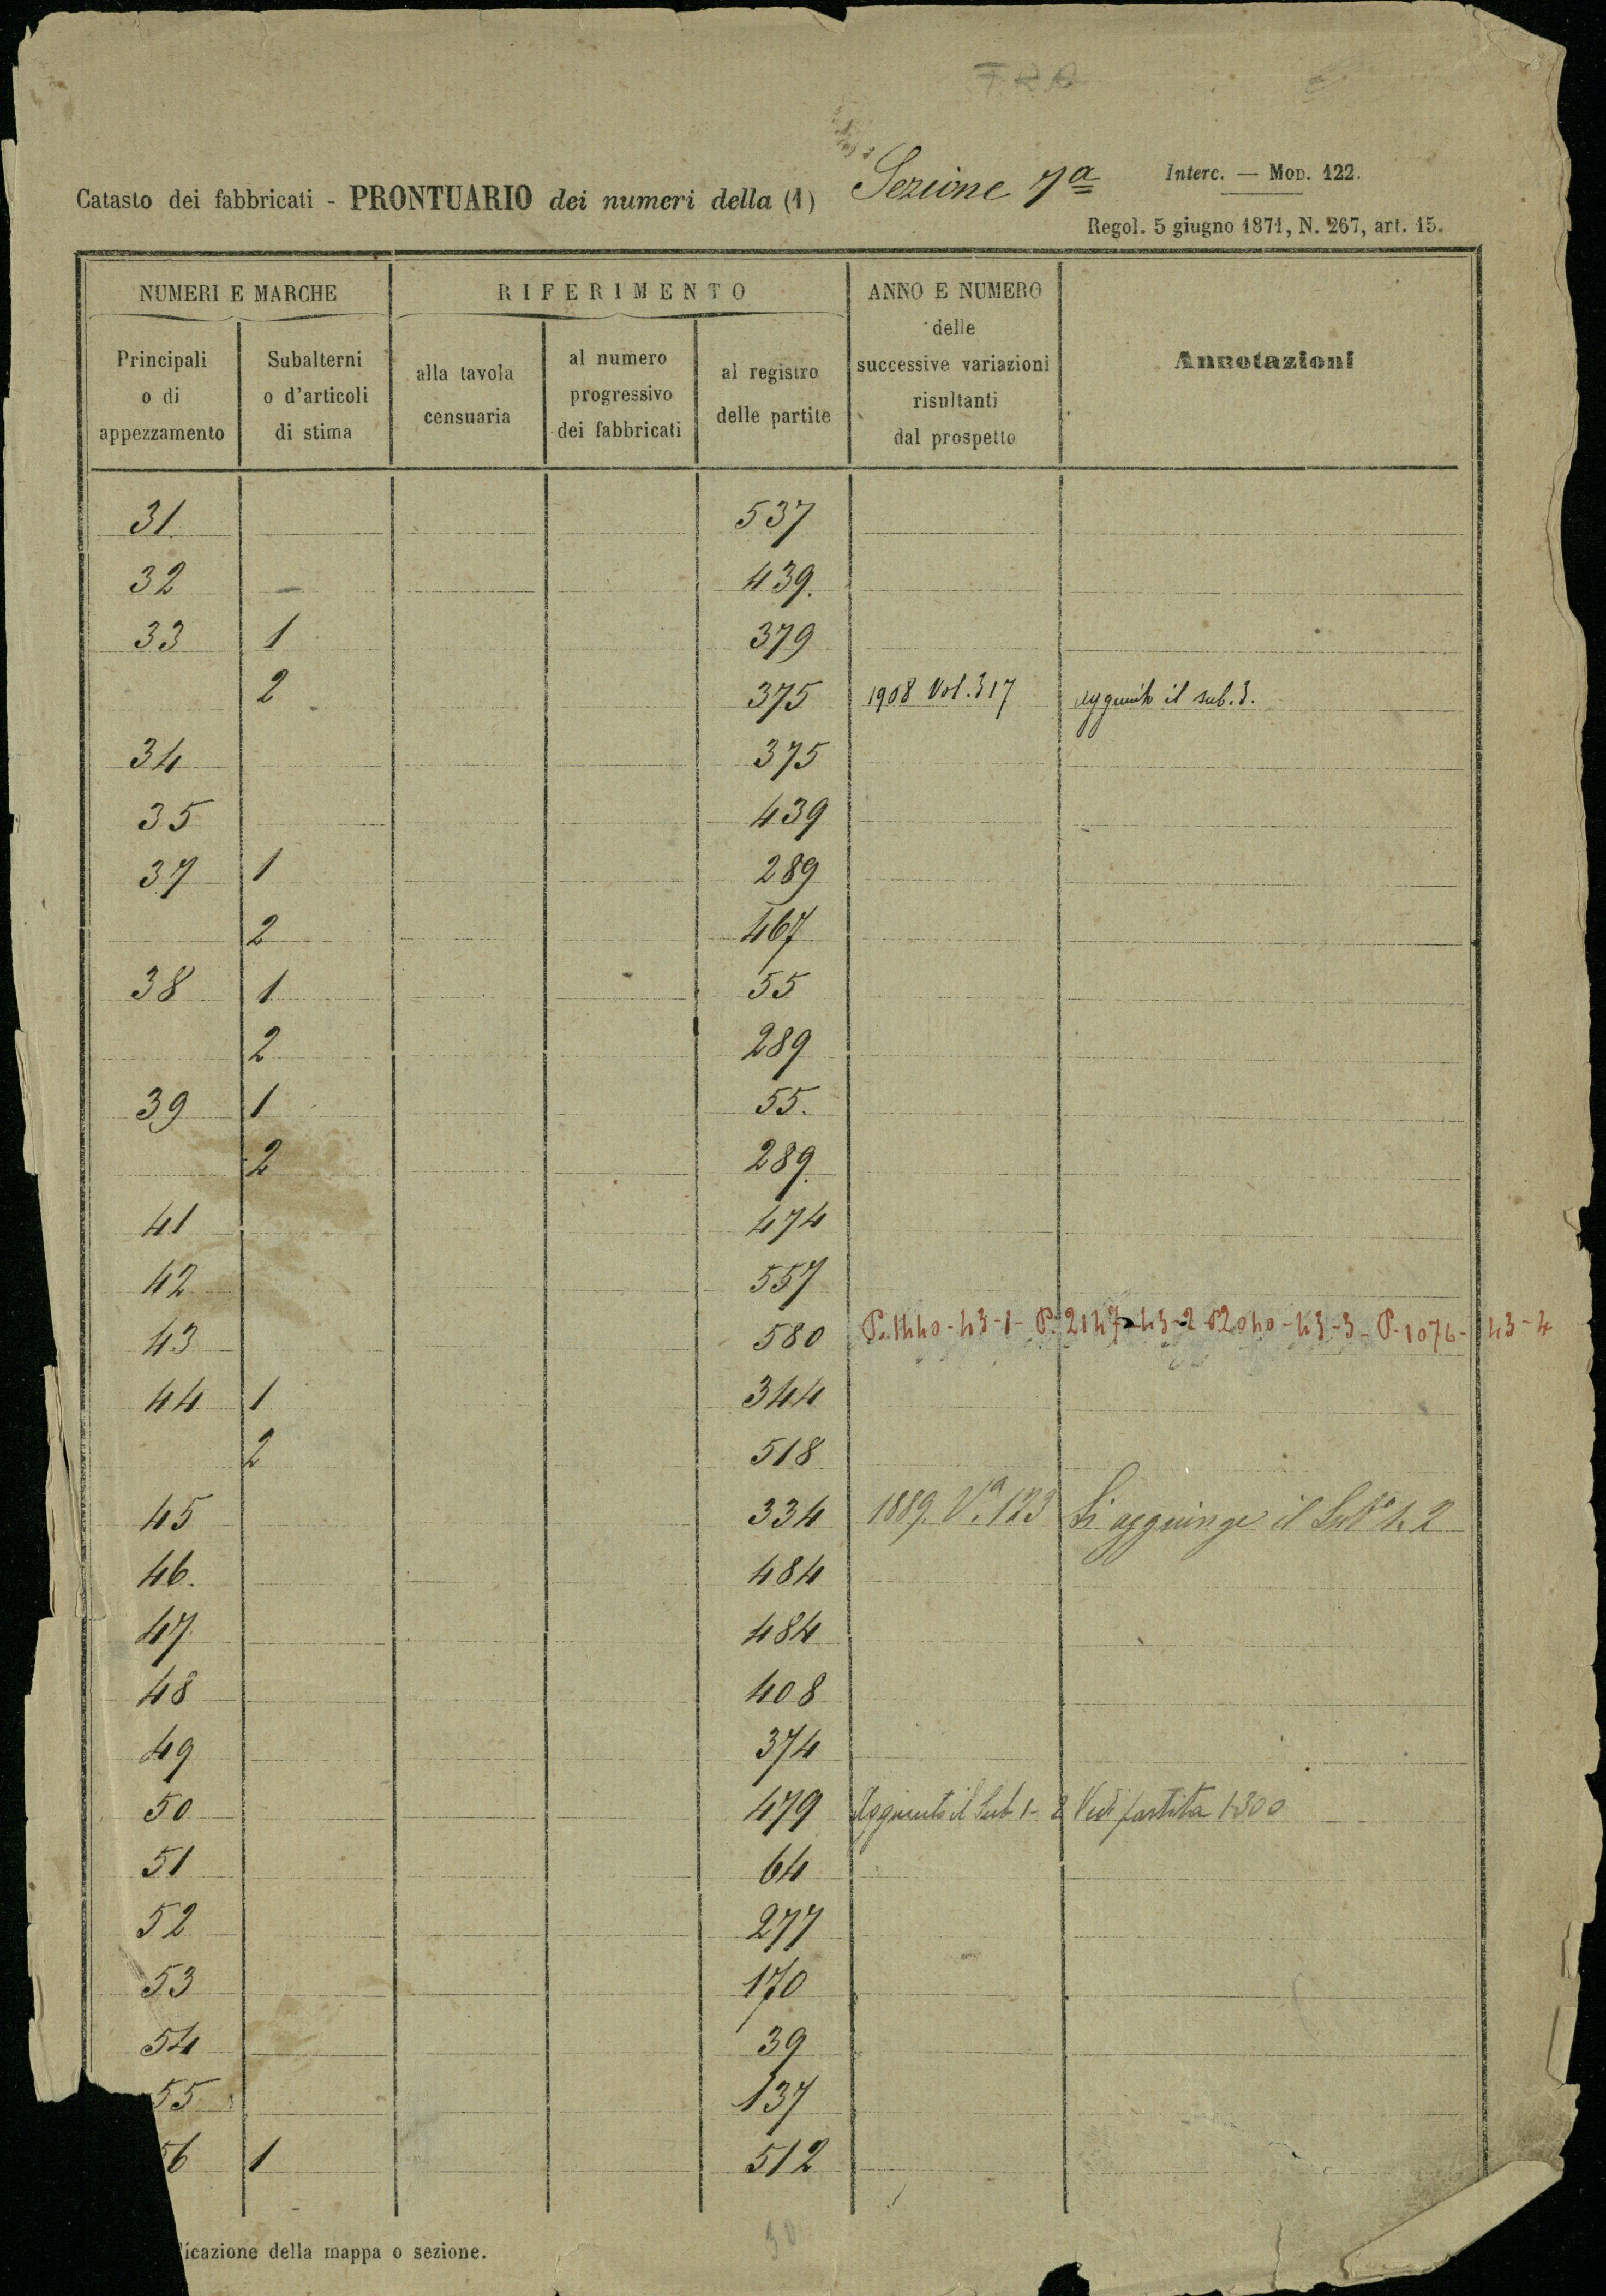 FRA
Catasto dei fabbricati - PRONTUARIO dei numeri della (1) Sezione 7ª
Interc. — Mod. 122.
Regol. 5 giugno 1871, N. 267, art. 15.
NUMERI E MARCHE
RIFERIMENTO
ANNO E NUMERO
delle
successive variazioni
risultanti
dal prospetto
Annotazioni
Principali
o di
appezzamento
Subalterni
o d'articoli
di stima
alla tavola
censuaria
al numero
progressivo
dei fabbricati
al registro
delle partite
31 537
32 439.
33 1 379
2 375 1908 Vol. 317 aggiunto il sub. 3.
34 375
35 439
37 1 289
2 467
38 1 55
2 289
39 1 55.
2 289.
41 474
42 557
43 580 P. 1440-43-1- P. 2147-43-2 P2040-43-3- P. 1076-43-4
44 1 344
2 518
45 334 1889. Vª. 123 Si aggiunge il Sub 1. 2
46. 484
47 484
48 408
49 374
50 479 Aggiunto il Sub 1- 2 Vedi partita 1300
51 64
52 277
53 170
54 39
55 137
56 1 512
licazione della mappa o sezione.
30